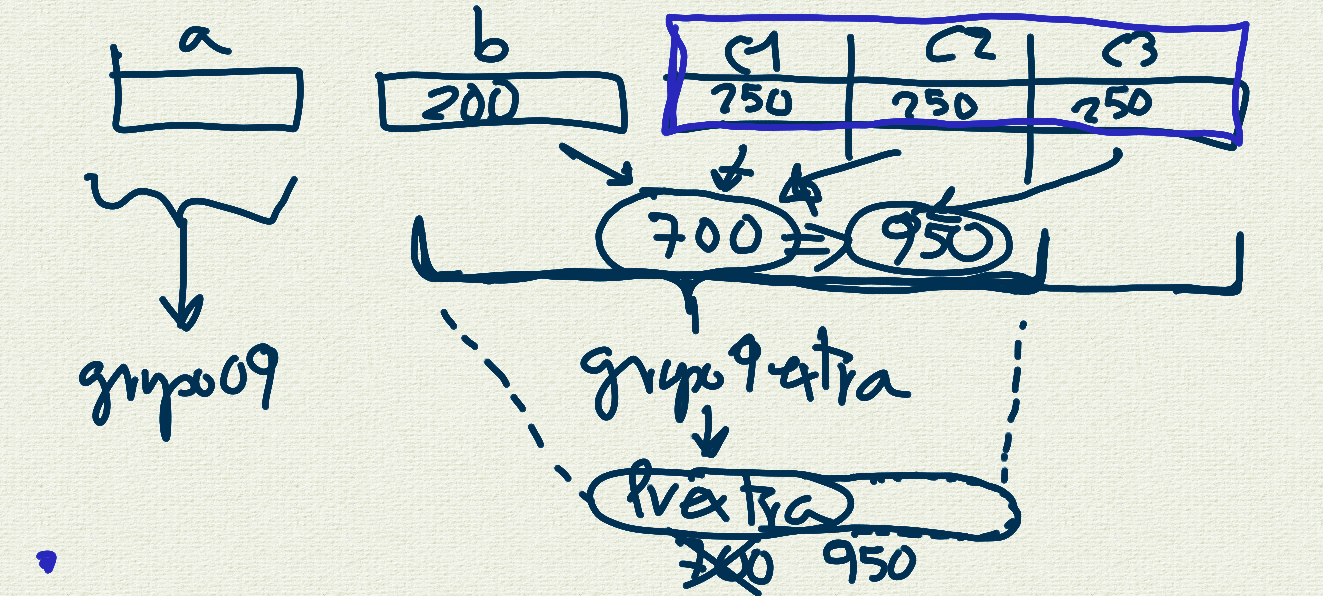 a b C1 C2 C3
200 250 250 250
700 => 950
grupo09 grupo9extra
lvextra
700 950